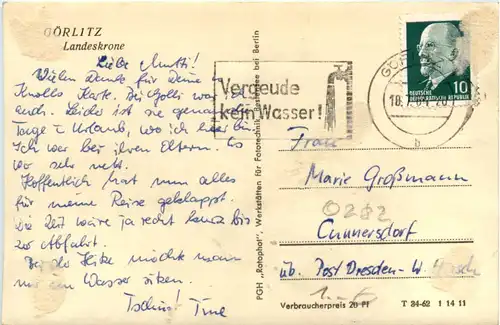 GÖRLITZ
Landeskrone
Liebe Mutti!
Vielen Dank für Deine
Karte. Bei Golli war ich
auch. Leider ist sie
Tage in Urlaub, wo ich hier bin.
Ich war bei ihren Eltern. Es
wo sehr nett.
Hoffentlich hat nun alles
für meine Reise geklappt.
Die Zeit wäre ja recht kurz bis
zur Abfahrt.
Bei der Hitze möchte man
nur am Wasser sitzen.
Tschüs! Tine
PGH "Rotophot", Werkstätten für Fototechnik, bei Berlin
Vergeude
kein Wasser!
DEUTSCHE
DEMOKRATISCHE REPUBLIK
10
18.
b
Frau
Marie Großmann
0282
Cunnersdorf
üb. Post Dresden-W.
Verbraucherpreis 20 Pf
T 34-62 1 14 11